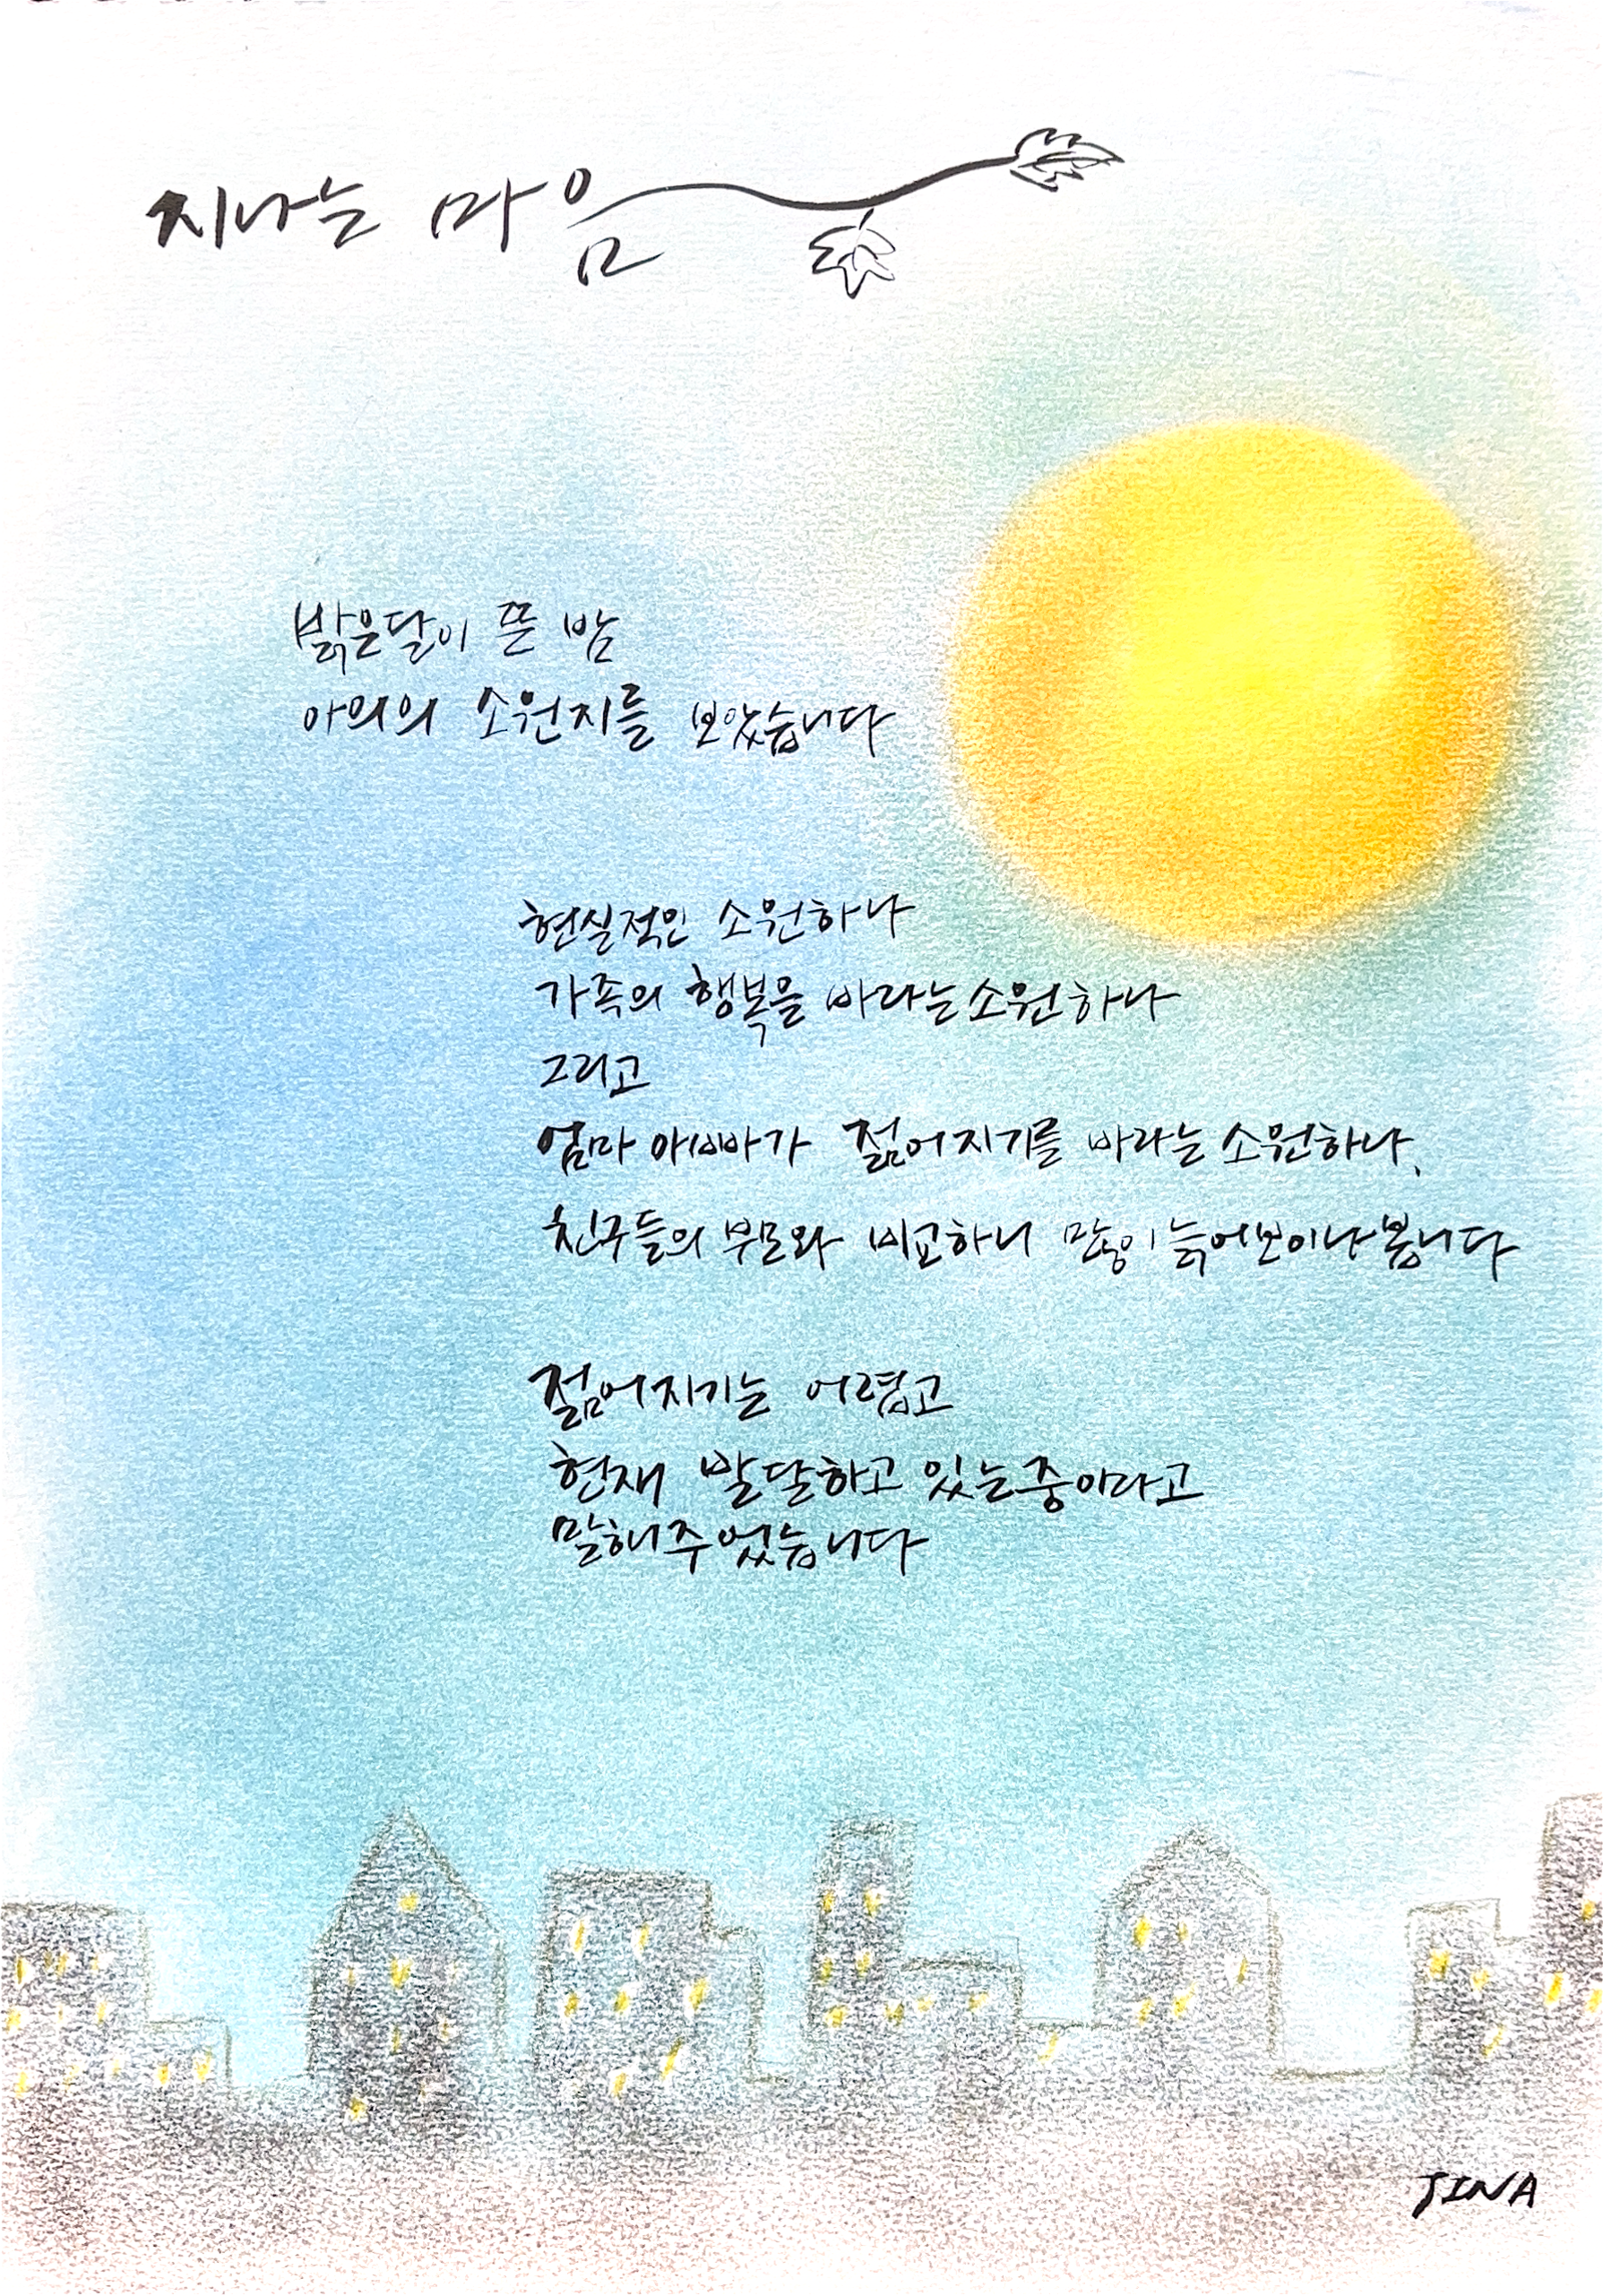 지나는 마음
밝은달이 뜬 밤
아의의 소원지를 보았습니다
현실적인 소원하나
가족의 행복을 바라는소원하나
그리고
엄마 아빠가 젊어지기를 바라는 소원하나.
친구들의 부모와 비교하니 많이 늙어보이나봅니다
젊어지기는 어렵고
현재 발달하고 있는중이다고
말해주었습니다
JINA